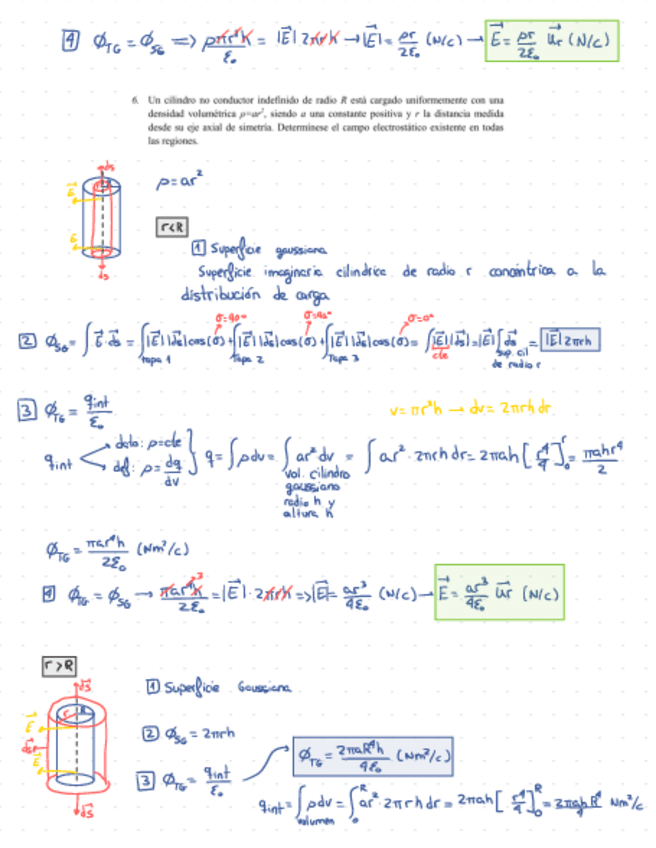 4 ϕ_TG = ϕ_SG => ρπr²h/ε₀ = |E⃗| 2πrh → |E⃗| = ρr/2ε₀ (N/C) → E⃗ = ρr/2ε₀ u⃗r (N/C)
6. Un cilindro no conductor indefinido de radio R está cargado uniformemente con una
densidad volumétrica ρ=ar², siendo a una constante positiva y r la distancia medida
desde su eje axial de simetría. Determínese el campo electrostático existente en todas
las regiones.
ds
E⃗
E⃗
ds
ρ = ar²
r<R
1 Superficie gaussiana
Superficie imaginaria cilíndrica de radio r concéntrica a la
distribución de carga
σ=90° σ=90° σ=0°
2 ϕ_SG = ∫ E⃗·ds⃗ = ∫|E⃗||ds⃗|cos(σ) + ∫|E⃗||ds⃗|cos(σ) + ∫|E⃗||ds⃗|cos(σ) = ∫|E⃗||ds⃗| = |E⃗|∫ds⃗ = |E⃗| 2πrh
tapa 1 Tapa 2 Tapa 3 cte sup. cil
de radio r
3 ϕ_TG = qint/ε₀
v = πr²h → dv = 2πrh dr
qint dato: ρ=cte
def: ρ = dq/dv
q = ∫ρdv = ∫ar²dv = ∫ar²·2πrh dr = 2πah [r⁴/4]₀ʳ = πahr⁴/2
vol. cilindro
gaussiano
radio h y
altura h
ϕ_TG = πar⁴h/2ε₀ (Nm²/c)
4 ϕ_TG = ϕ_SG → πar⁴h/2ε₀ = |E⃗|·2πrh => |E⃗| = ar³/4ε₀ (N/c) → E⃗ = ar³/4ε₀ u⃗r (N/c)
3
r>R
ds⃗
r R
E⃗
ds⃗
E⃗
ds⃗
1 Superficie Gaussiana
2 ϕ_SG = 2πrh
3 ϕ_TG = qint/ε₀
ϕ_TG = 2πaR⁴h/4ε₀ (Nm²/c)
qint = ∫ρdv = ∫₀ᴿ ar² 2πrh dr = 2πah [r⁴/4]₀ᴿ = 2πah R⁴/4 Nm²/c
volumen